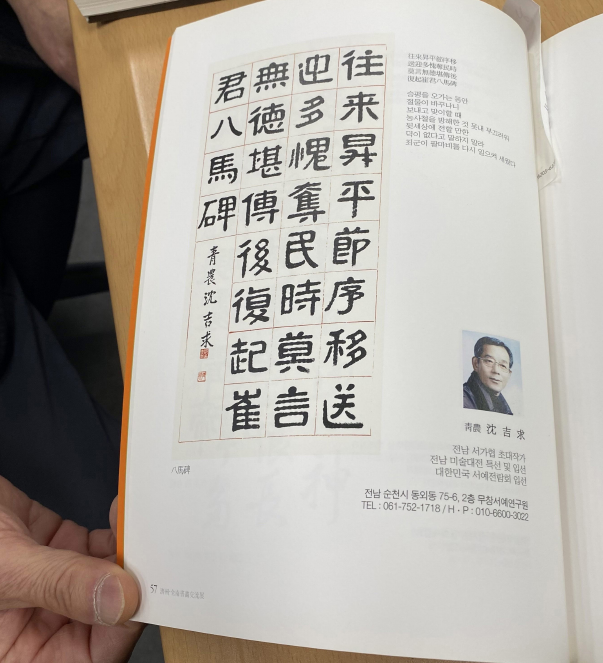 往来昇平節序移送
迎多愧奪民時莫言
無徳堪傳後復起崔
君八馬碑
青農沈吉求
八馬碑
往來昇平節序移
送迎多愧奪民時
莫言無德堪傳後
復起崔君八馬碑
승평을 오가는 동안
바꾸나니
보내고 맞이할 때
농사철을 방해한 것 못내 부끄러워
뒷세상에 전할 만한
덕이 없다고 말하지 말라
최군이 팔마비를 다시 일으켜 세웠다
靑農 沈吉求
전남 서가협 초대작가
전남 미술대전 특선 및 입선
대한민국 서예전람회 입선
전남 순천시 동외동 75-6, 2층 무침서예연구원
TEL : 061-752-1718 / H·P : 010-6600-3022
57